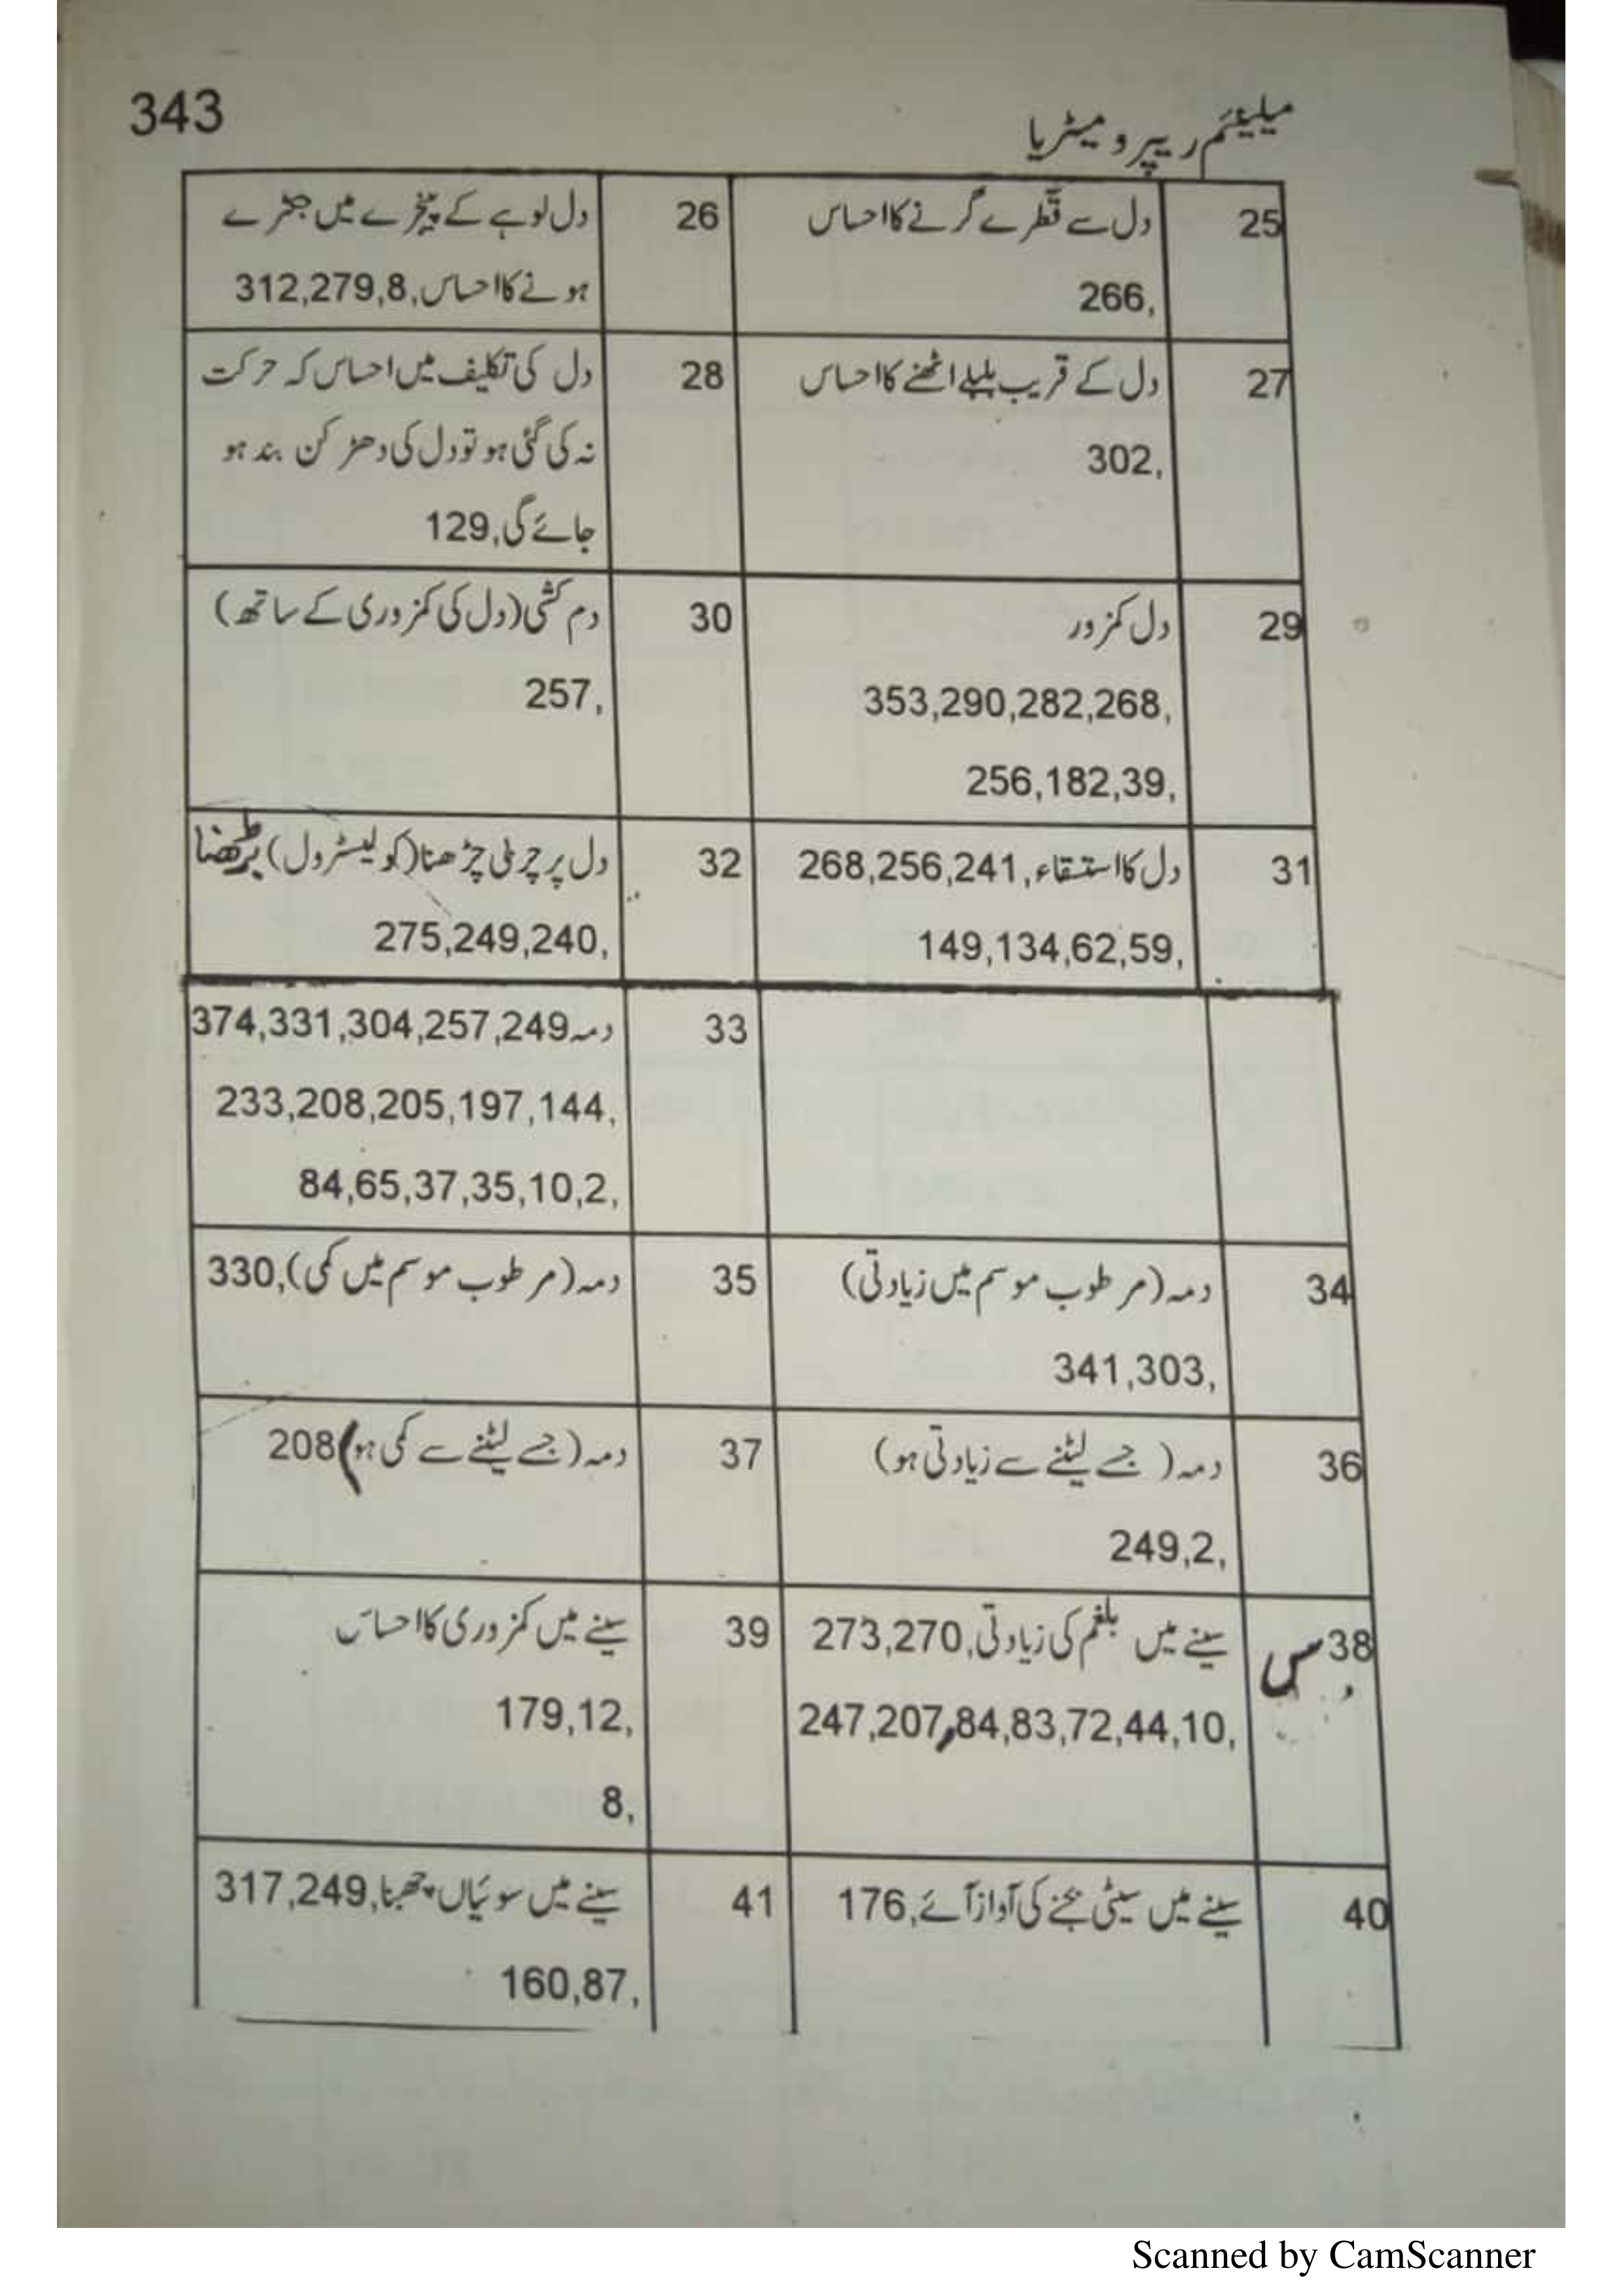 343
میلینئم ریپرومیٹریا
25
دل سے قطرے گرنے کا احساس
266,
26
دل لوہے کے پنجرے میں جکڑے
ہونے کا احساس,312,279,8
27
دل کے قریب بلبلے اٹھنے کا احساس
302,
28
دل کی تکلیف میں احساس کہ حرکت
نہ کی گئی ہو تو دل کی دھڑکن بند ہو
جائے گی,129
29
دل کمزور
353,290,282,268,
256,182,39,
30
دم کشی (دل کی کمزوری کے ساتھ)
257,
31
دل کا استسقاء,268,256,241
149,134,62,59,
32
دل پر چربی چڑھنا (کولیسٹرول) بڑھنا
275,249,240,
33
دمہ 374,331,304,257,249
233,208,205,197,144,
84,65,37,35,10,2,
34
دمہ (مرطوب موسم میں زیادتی)
341,303,
35
دمہ (مرطوب موسم میں کمی),330
36
دمہ ( جسے لیٹنے سے زیادتی ہو)
249,2,
37
دمہ (جسے لیٹنے سے کمی ہو) 208
38 س
سینے میں بلغم کی زیادتی,273,270
247,207,84,83,72,44,10,
39
سینے میں کمزوری کا احساس
179,12,
8,
40
سینے میں سیٹی بجنے کی آواز آئے,176
41
سینے میں سوئیاں چبھنا,317,249
160,87,
Scanned by CamScanner